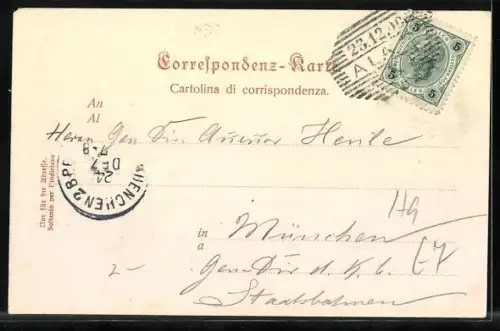 Correspondenz-Karte
Cartolina di corrispondenza.
23.12.
ALA
5 5
5 5
An
Al
Herrn Gen. Dir.
MUENCHEN 2 B.P.
24
DEZ
7-8
Nur für die Adresse.
Soltanto per l'indirizzo
in
a
München
Gen. Dir. d. K. b.
Staatsbahnen